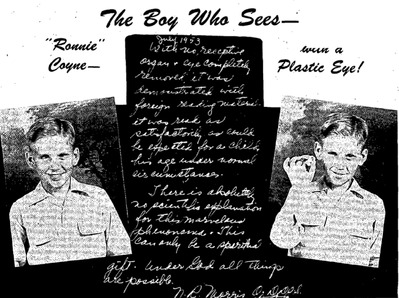 The Boy Who Sees—
"Ronnie" Coyne—
with a Plastic Eye!
July 1953
With no receptive
organ & eye completely
removed, it was
demonstrated with
foreign reading material
it was read as
satisfactorily as could
be expected for a child
his age under normal
circumstances.
There is absolutely
no scientific explanation
for this marvelous
phenomena. This
can only be a
gift. Under God all things
are possible.
N.R. Morris